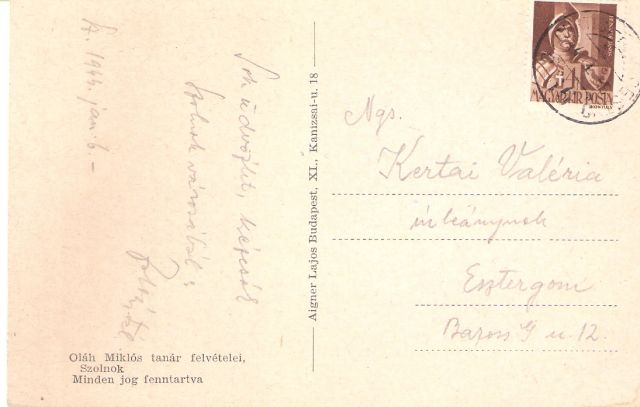 Sz. 1944. jan. 6 –
Sok üdvözlet, kézcsók
Szolnok városából:
Oláh Miklós tanár felvételei,
Szolnok
Minden jog fenntartva
Aigner Lajos Budapest, XI., Kanizsai-u. 18
MAGYAR KIR. POSTA
Ngs.
Kertai Valéria
úrleánynak
Esztergom
Baross G u. 12.